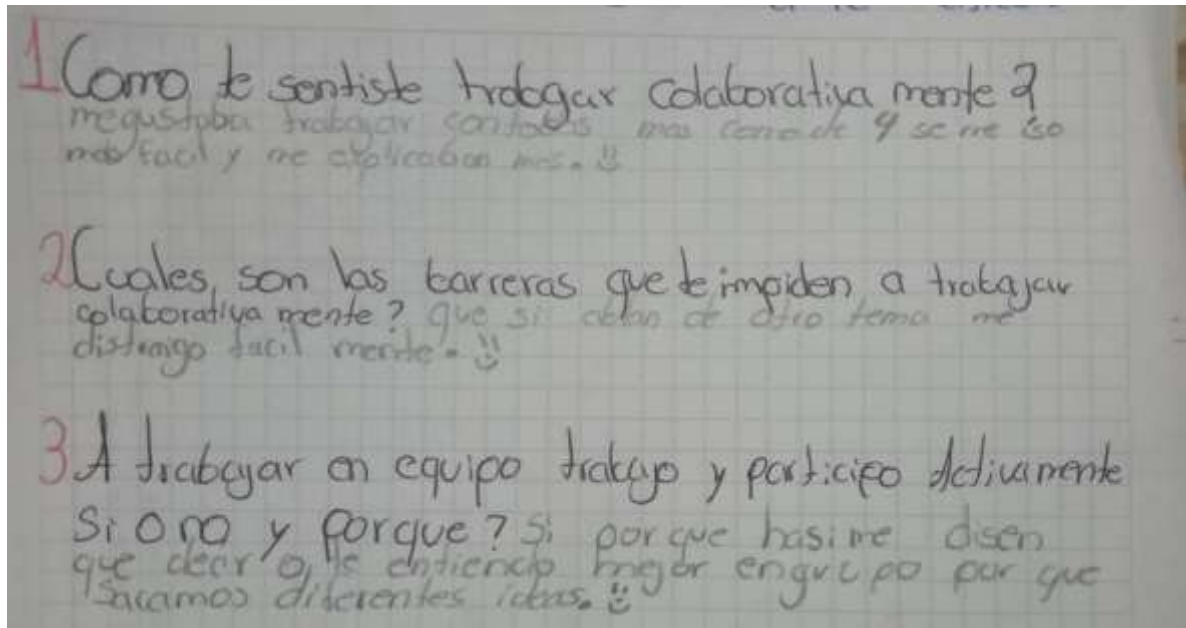 1 Como te sentiste trabagar colaborativa mente?
megustaba trabajar con todos mas y se me iso
mas facil y me explicaban mas.
2 Cuales, son las barreras que te impiden a trabajar
colaborativa mente? que si ablan de otro tema me
distraigo facil mente.
3 A trabajar en equipo trabajo y participo Activamente
Si o no y porque? Si porque hasi me disen
que decir o entiendo mejor engrupo por que
Sacamos diferentes ideas.